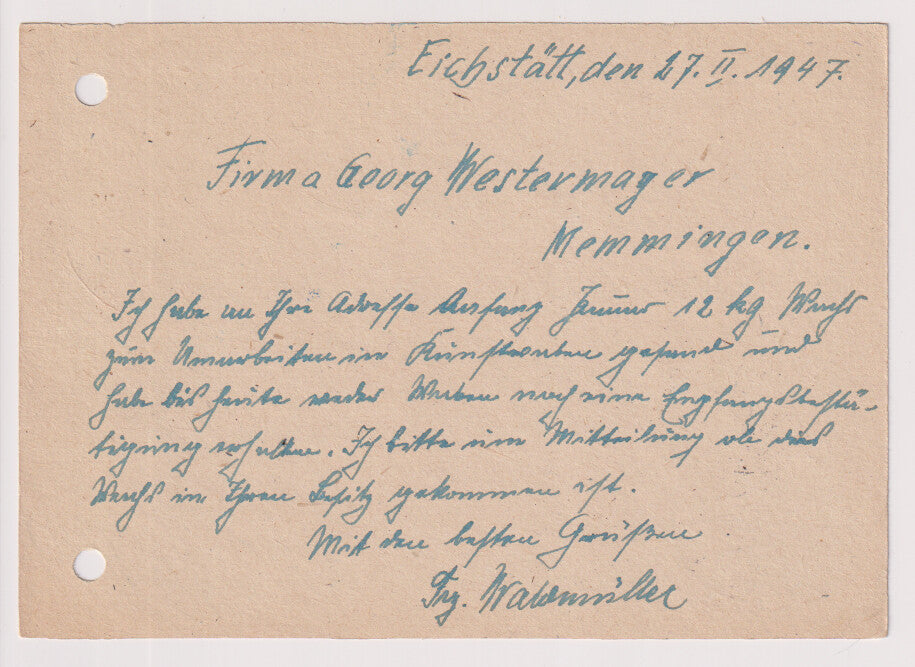 Eichstätt, den 27. II. 1947.
Firma Georg Westermayer
Memmingen.
Ich habe an Ihre Adresse Anfang Januar 12 kg Wachs
zum Umarbeiten in Kunstwaben gesand und
habe bis heute weder Waben noch eine Empfangsbestä-
tigung erhalten. Ich bitte um Mitteilung ob das
Wachs in Ihren Besitz gekommen ist.
Mit den besten Grüßen
Waldmüller